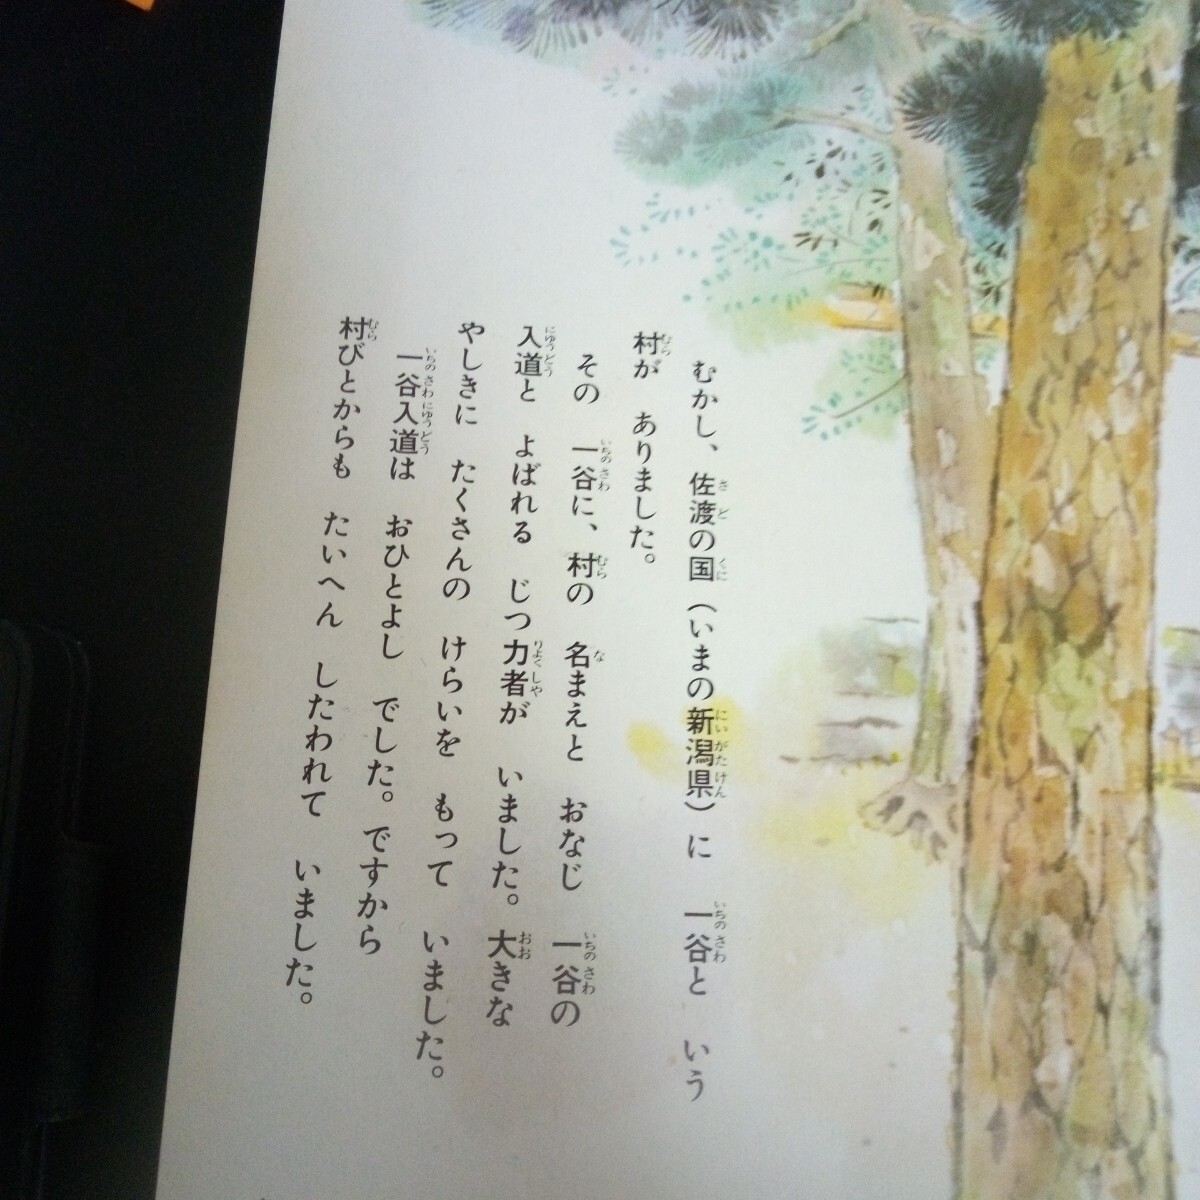 むかし、佐渡の国(いまの新潟県)に 一谷と いう
村が ありました。
その 一谷に、村の 名まえと おなじ 一谷の
入道と よばれる じつ力者が いました。大きな
やしきに たくさんの けらいを もって いました。
一谷入道は おひとよし でした。ですから
村びとからも たいへん したわれて いました。